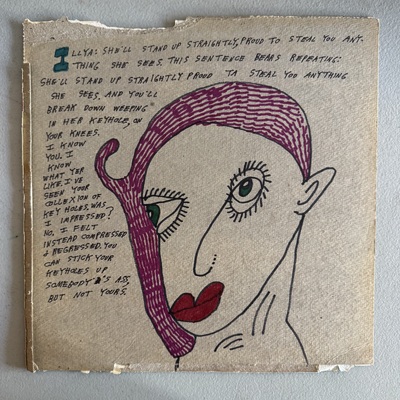 ILLYA: SHE'LL STAND UP STRAIGHTLY, PROUD TO STEAL YOU ANY-
THING SHE SEES. THIS SENTENCE BEARS REPEATING:
SHE'LL STAND UP STRAIGHTLY PROUD TA STEAL YOU ANYTHING
SHE SEES, AND YOU'LL
BREAK DOWN WEEPING
IN HER KEYHOLE, ON
YOUR KNEES.
I KNOW
YOU. I
KNOW
WHAT YER
LIKE. I'VE
SEEN YOUR
COLLEXION OF
KEY HOLES, WAS
I IMPRESSED?
NO. I FELT
INSTEAD COMPRESSED
+ REGRESSED. YOU
CAN STICK YOUR
KEYHOLES UP
SOMEBODY'S ASS,
BUT NOT YOURS.